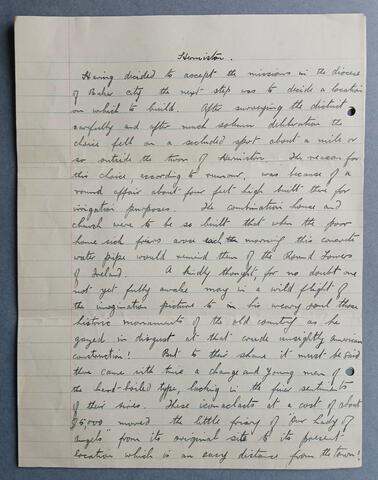 Hermiston.
Having decided to accept the missions in the diocese
of Baker City the next step was to decide a location
on which to build. After surveying the district
carefully and after much solemn deliberation the
choice fell on a secluded spot about a mile or
so outside the town of Hermiston. The reason for
this choice, according to rumour, was because of a
round affair about four feet high built there for
irrigation purposes. The combination house and
church were to be so built that when the poor
home sick friars arose each the morning this concrete
water pipe would remind them of the Round Towers
of Ireland. A kindly thought, for no doubt one
not yet fully awake may in a wild flight of
the imagination picture to in his weary soul those
historic monuments of the old country as he
gazed in disgust at that crude unsightly american
construction! But to their shame it must be said
there came with time a change and young men of
the hard-boiled type, lacking in the finer sentiments
of their sires. These iconoclasts at a cost of about
$5,000 moved the little friary of "Our Lady of
Angels" from its original site to its present
location which is an easy distance from the town!